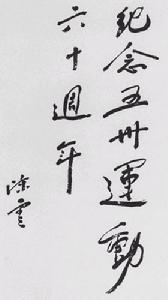 纪念五卅運動
六十週年
陈雲